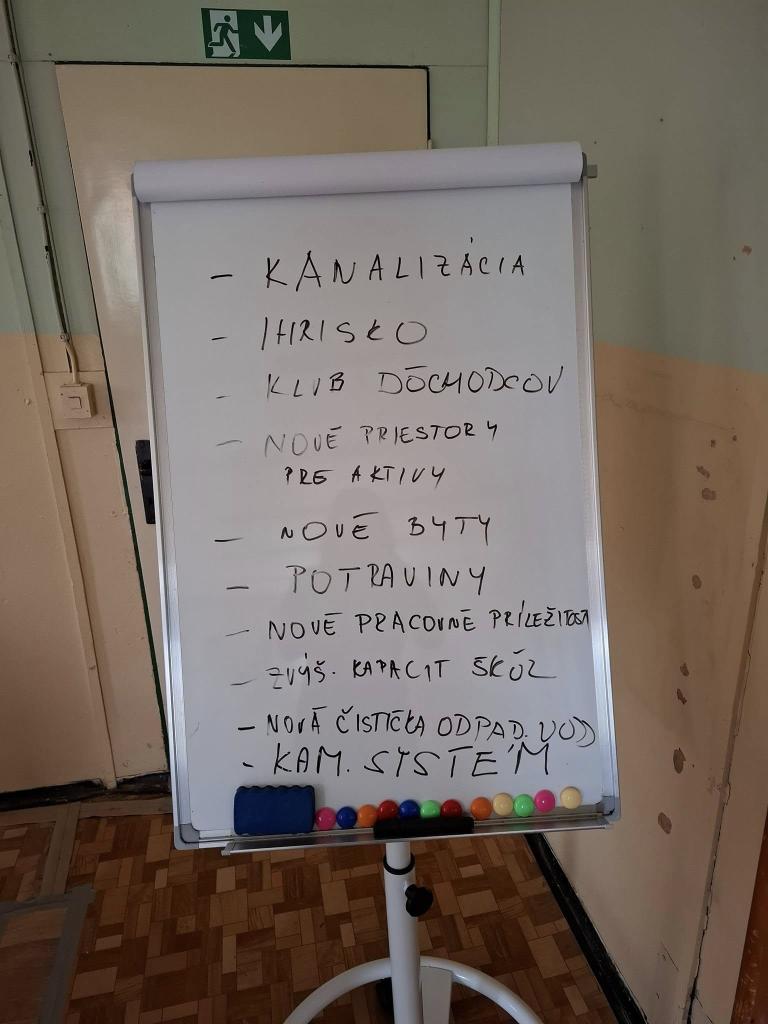 - KANALIZÁCIA
- IHRISKO
- KLUB DÔCHODCOV
- NOVÉ PRIESTORY
PRE AKTIVY
- NOVÉ BYTY
- POTRAVINY
- NOVÉ PRACOVNÉ PRÍLEŽITOSTI
- ZVÝŠ. KAPACIT ŠKÔL
- NOVÁ ČISTIČKA ODPAD. VÔD
- KAM. SYSTÉM